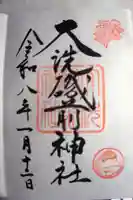 大洗磯前神社
令和八年一月十二日